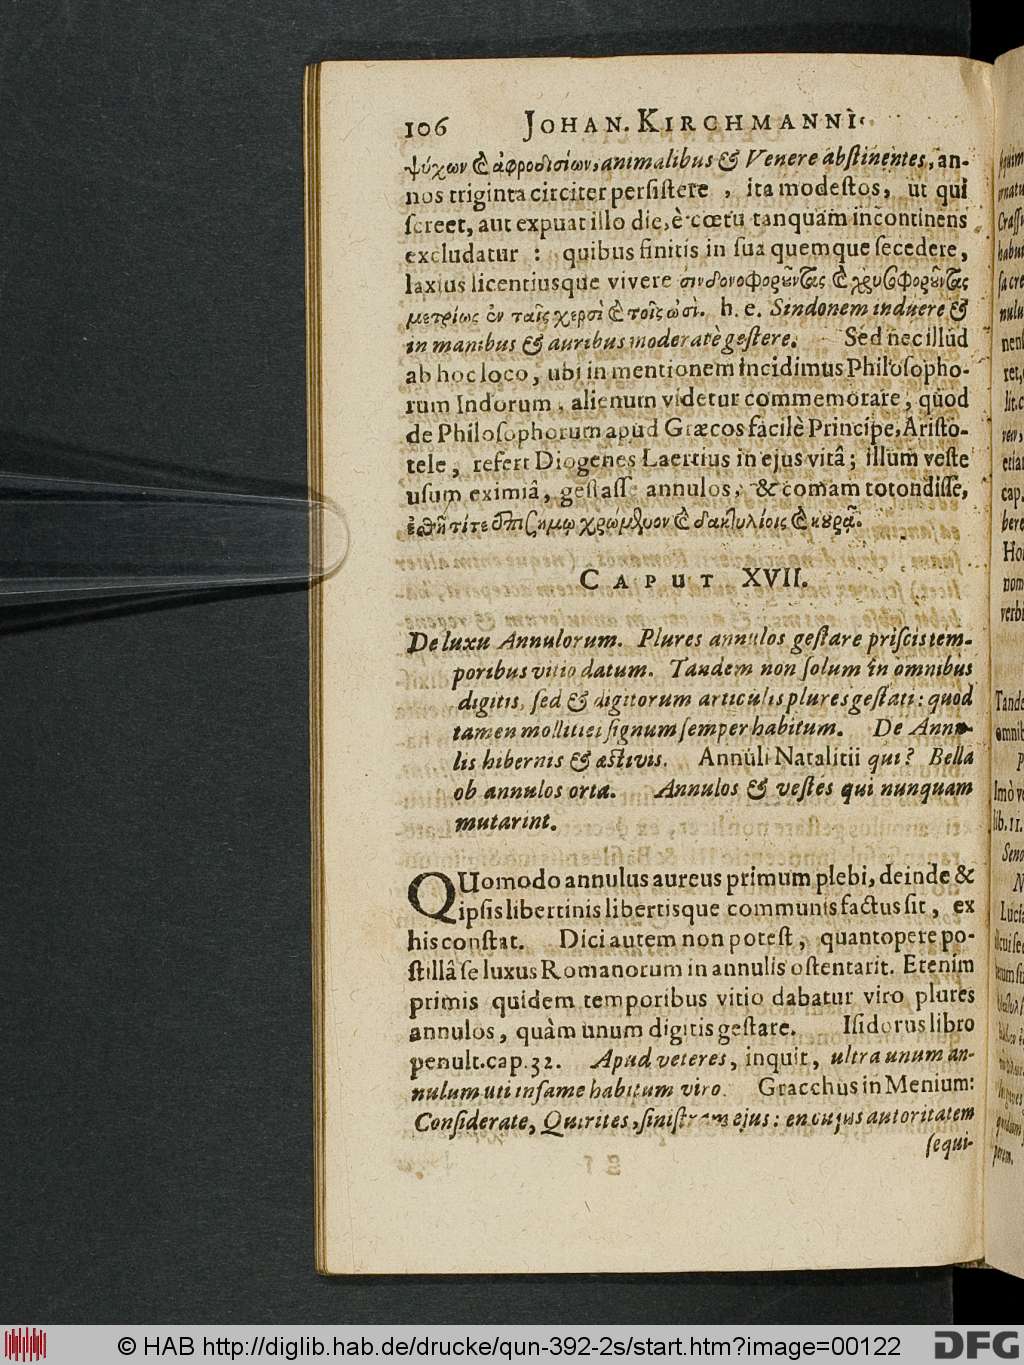 106 JOHAN. KIRCHMANNI
ψύχων & ἀφροδισίων, animalibus & Venere abstinentes, an-
nos triginta circiter persistere , ita modestos, ut qui
screet, aut expuat illo die, è cœtu tanquam incontinens
excludatur : quibus finitis in sua quemque secedere,
laxius licentiusque vivere σινδονοφοροῦντας & χρυσοφοροῦντας
μετρίως ἐν ταῖς χερσὶ & τοῖς ὠσὶ. h. e. Sindonem induere &
in manibus & auribus moderatè gestere. Sed nec illud
ab hoc loco, ubi in mentionem incidimus Philosopho-
rum Indorum, alienum videtur commemorare, quod
de Philosophorum apud Græcos facilè Principe, Aristo-
tele, refert Diogenes Laertius in ejus vitâ; illum veste
usum eximiâ, gestasse annulos, & comam totondisse,
ἐσθῆτί τε ἐπισήμῳ χρώμενον & δακτυλίοις & κουρᾷ.
CAPUT XVII.
De luxu Annulorum. Plures annulos gestare priscis tem-
poribus vitio datum. Tandem non solum in omnibus
digitis, sed & digitorum articulis plures gestati: quod
tamen mollitiei signum semper habitum. De Annu-
lis hibernis & æstivis. Annuli Natalitii qui? Bella
ob annulos orta. Annulos & vestes qui nunquam
mutarint.
QUomodo annulus aureus primum plebi, deinde &
ipsis libertinis libertisque communis factus sit, ex
his constat. Dici autem non potest, quantopere po-
stillâ se luxus Romanorum in annulis ostentarit. Etenim
primis quidem temporibus vitio dabatur viro plures
annulos, quàm unum digitis gestare. Isidorus libro
penult. cap. 32. Apud veteres, inquit, ultra unum an-
nulum uti infame habitum viro. Gracchus in Menium:
Considerate, Quirites, sinistram ejus: en cujus autoritatem
sequi-
© HAB http://diglib.hab.de/drucke/qun-392-2s/start.htm?image=00122
DFG